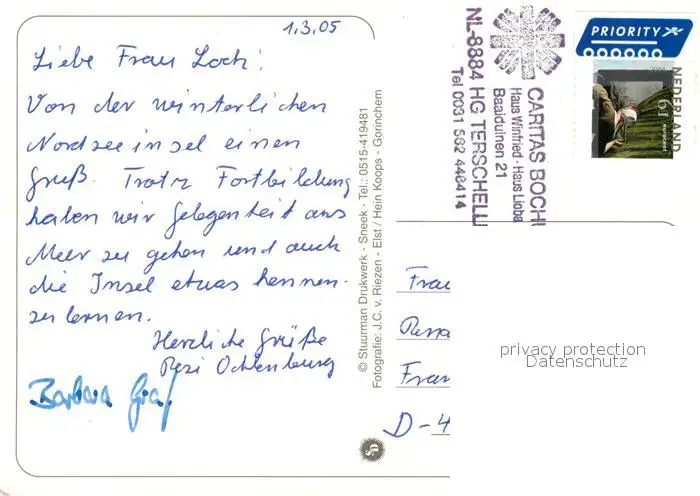 1.3.05
Liebe Frau Loch!
Von der winterlichen
Nordseeinsel einen
Gruß. Trotz Fortbildung
haben wir Gelegenheit ans
Meer zu gehen und auch
die Insel etwas kennen-
zulernen.
Herzliche Grüße
Resi Ochtenburg
Barbara Graf
© Stuurman Drukwerk - Sneek - Tel.: 0515-419481
Fotografie: J.C. v. Riezen - Elst / Hein Koops - Gorinchem
CARITAS BOCH
Haus Winfried - Haus Lioba
Baalduinen 21
NL-8884 HG TERSCHELL
Tel 0031 562 448414
PRIORITY
NEDERLAND
2004
61 eurocent
Frau
Fran
D-4
privacy protection
Datenschutz